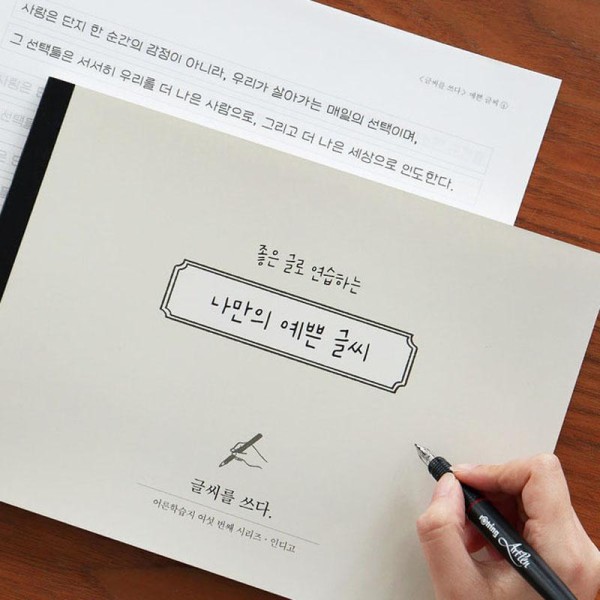 사랑은 단지 한 순간의 감정이 아니라, 우리가 살아가는 매일의 선택이며,
그 선택들은 서서히 우리를 더 나은 사람으로, 그리고 더 나은 세상으로 인도한다.
<글씨를 쓰다> 예쁜 글씨 ④
좋은 글로 연습하는
나만의 예쁜 글씨
글씨를 쓰다.
어른학습지 여섯 번째 시리즈 · 인디고
rotring Artpen